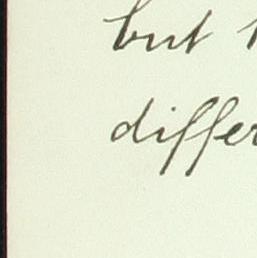 but
differ